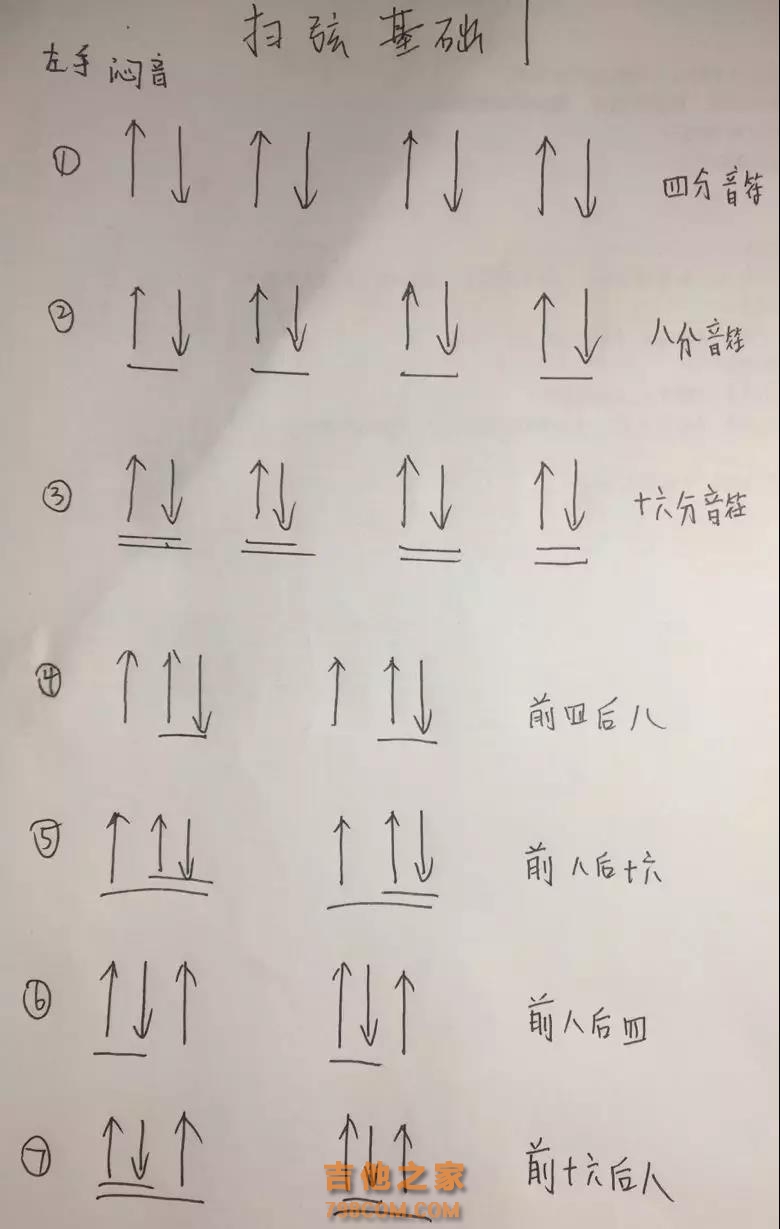 扫弦基础1
左手闷音
① ↑ ↓ ↑ ↓ ↑ ↓ ↑ ↓ 四分音符
② ↑ ↓ ↑ ↓ ↑ ↓ ↑ ↓ 八分音符
③ ↑ ↓ ↑ ↓ ↑ ↓ ↑ ↓ 十六分音符
④ ↑ ↑ ↓ ↑ ↑ ↓ 前四后八
⑤ ↑ ↑ ↓ ↑ ↑ ↓ 前八后十六
⑥ ↑ ↓ ↑ ↑ ↓ ↑ 前八后四
⑦ ↑ ↓ ↑ ↑ ↓ ↑ 前十六后八
吉他之家
798COM.COM